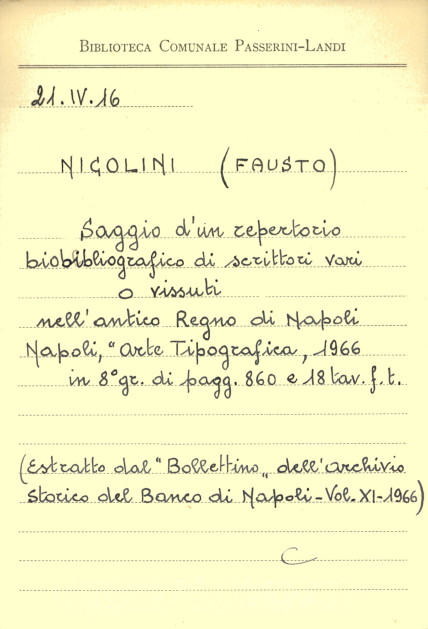 BIBLIOTECA COMUNALE PASSERINI-LANDI
21.IV.16
NICOLINI (FAUSTO)
Saggio d'un repertorio
biobibliografico di scrittori vari
o vissuti
nell'antico Regno di Napoli
Napoli, "Arte Tipografica, 1966
in 8° gr. di pagg. 860 e 18 tav. f. t.
(Estratto dal "Bollettino„ dell'Archivio
Storico del Banco di Napoli - Vol. XI - 1966)
C